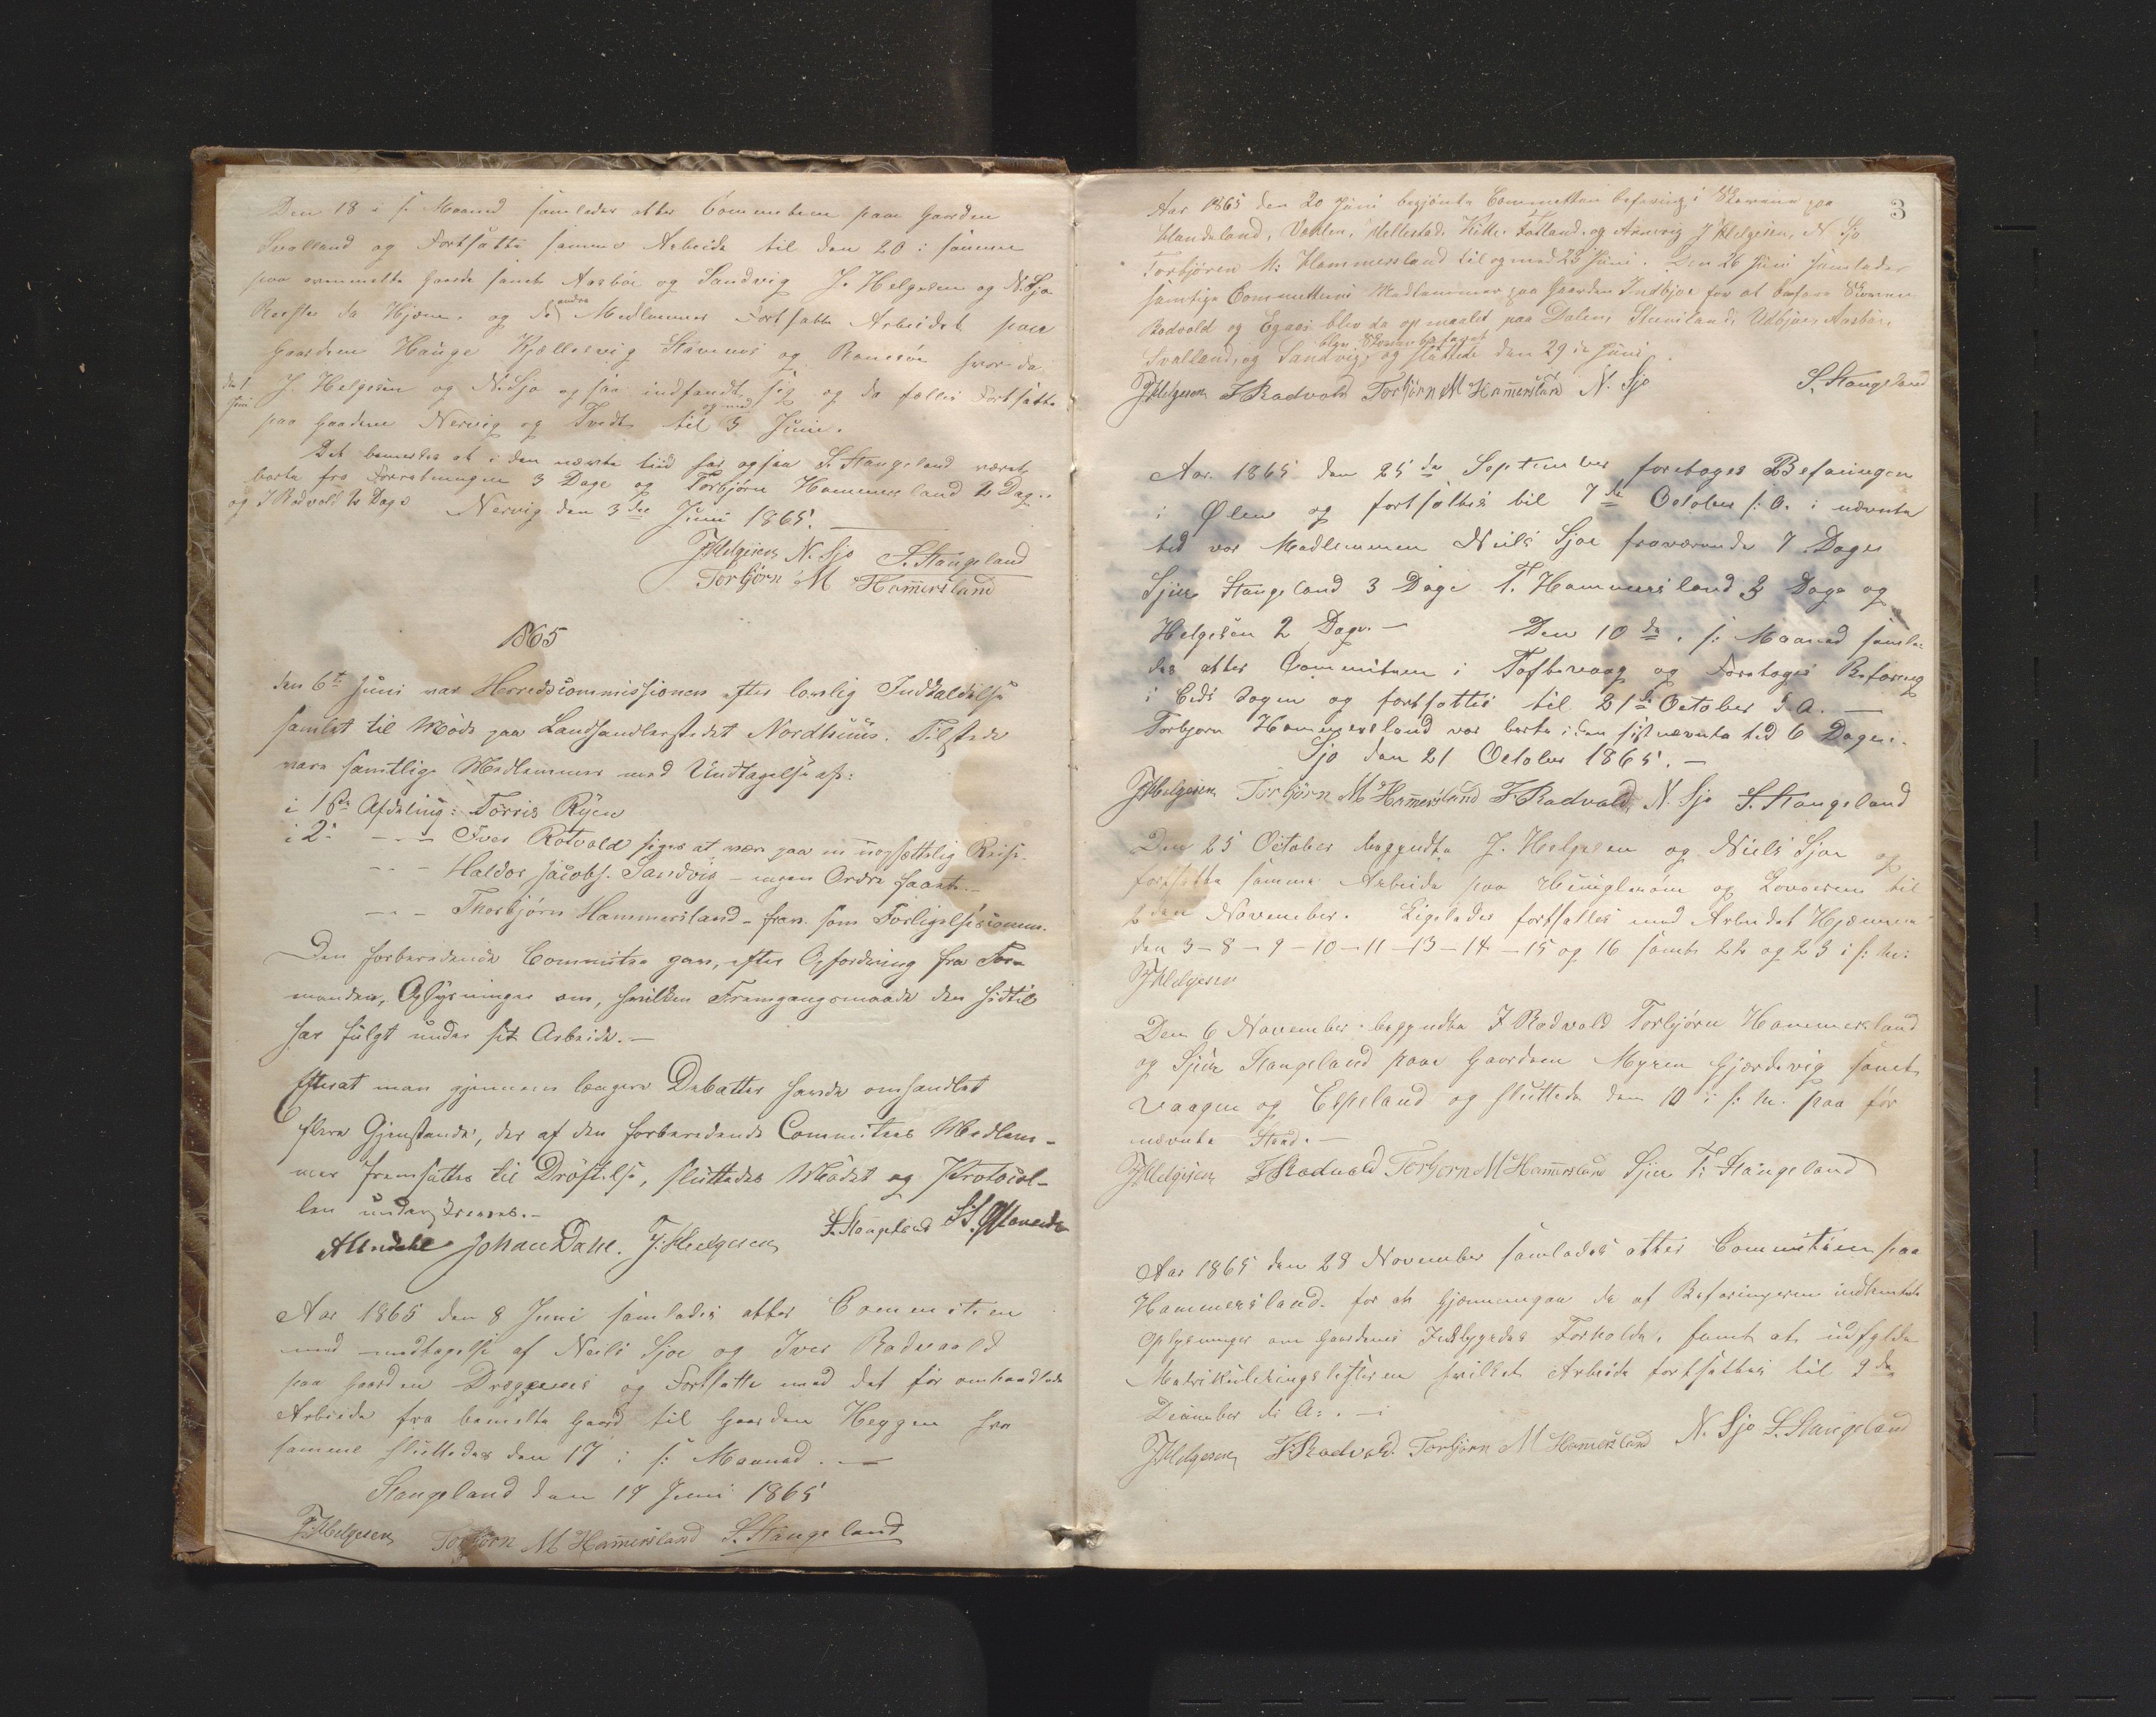 Den 18 i s: Maaned samledes atter Commiteen paa Gaarden
Svalland og Fortsatte samme Arbeide til den 20: samme
paa ovenmelte Gaarde samt Aasbøe og Sandvig J. Helgesen og N. Sjo
Reiste da Hjem. og de andre Medlemmer Fortsatte Arbeidet paa
Gaardene Hauge Kjællesvig Stavenes og hvor da
den 1 Juni J. Helgesen og N. Sjo ogsaa indfandt sig og da fælles Fortsatte
paa Gaardene Nervig og Tvedt til og med 3 Juni.
Det bemerkes at i den nævnte tiid har ogsaa S. Stangeland været
borte fra Forretningen 3 Dage og Torbjørn Hammersland 2 Dage
og I Rødvold 2 Dage Nervig den 3die Juni 1865.
J Helgesen N. Sjo S. Stangeland
Torbjørn M Hammersland
1865
den 6te Juni var Herredscommissionen efter lovlig Indkaldelse
samlet til Møde paa Landhandlerstedet Nordhuus. Tilstede
vare samtlige Medlemmer med Undtagelse af:
i 1ste Afdeling: Tørris Ryen
i 2: - - - Iver Rotvold siges at være paa en uopsættelig Reise.
- - - Haldor Jacobs. Sandvig - ingen Ordre faaet. -
- - - Thorbjørn Hammersland - frav. som Forligelsescomm.
Den forberedende Commitee gav, efter Opfordring fra For-
manden, Oplysninger om, hvilken Fremgangsmaade den hidtil
har fulgt under sit Arbeide. -
Efterat man gjennem længere Debatter havde omhandlet
flere Gjenstande, der af den forberedende Commitees Medlem-
mer fremsattes til Drøftelse, sluttedes Mødet og Protocol-
len underskreves. -
Johan Dahl. J. Helgesen S. Stangeland
Aar 1865 den 8 Juni samledes atter Commiteen
med undtagelse af Neils Sjoe og Iver Rødvold
paa Gaarden og Fortsatte med det før omhandlede
Arbeide fra bemelte Gaard til Gaarden Heggen hvor
samme sluttedes den 17 i s: Maaned. -
Stangeland den 17 Juni 1865
J. Helgesen Torbjørn M Hammersland S. Stangeland
3
Aar 1865 den 20 Juni begjønte Commetteen befaring i Skovene paa
Handeland, Vehlen, Mellestad, Fatland, og J Helgesen, N Sjo
Torbjøren M: Hammersland til og med 23 Juni. Den 26 Juni samledes
samtlige Commetteens Medlemmer paa Gaarden Indbjoe for at befare Skoven
Rødvold og blev da opmaalet paa Dalen, Udbjoe, Aasbøe,
Svalland, og Sandvig, blev Skoven befaret og sluttede den 29 de Juni.
J Helgesen I Rødvold Torbjørn M Hammersland N. Sjo S. Stangeland
Aar 1865 den 25de September foretoges Befaringen
i Ølen og fortsattes til 7de October s: A. i nævnte
tid var Medlemmen Neils Sjoe fraværende 7 Dage
Sjur Stangeland 3 Dage T. Hammersland 3 Dage og
Helgesen 2 Dage. - Den 10de i s: Maaned samle-
des atter Commiteen i Toftevaag og Foretoges Befaring
i Eids Sogn og fortsattes til 21de October s. A. -
Torbjørn Hammersland var borte i den sistnævnte tid 6 Dage. -
Sjo den 21 October 1865. -
J Helgesen Torbjörn M Hammersland I. Rødvold N. Sjo S. Stangeland
Den 25 October begyndte J. Helgesen og Niels Sjoe og
fortsatte samme Arbeide paa og til
2den November. Ligeledes fortsattes med Arbeidet Hjemme
den 3 - 8 - 9 - 10 - 11 - 13 - 14 - 15 og 16 samt 22 og 23 i s: M:
J Helgesen
Den 6 November begyndte I Rødvold Torbjørn Hammersland
og Sjur Stangeland paa Gaardene Myren Gjerdevig samt
Vaagen og Espeland og sluttede den 10 i s: M. paa før
nævnte Sted. -
J Helgesen I Rødvold Torbjorn M Hammersland Sjur T: Stangeland
Aar 1865 den 28 November samledes atter Commiteen paa
Hammersland. for at Gjennemgaa de af Befaringerne indhentede
Oplysninger om Gaardenes Forholde, samt at udfylde
Matrikuleringslisterne hvilket Arbeide fortsattes til 9de
December s: A: . -
J Helgesen I Rødvold Torbjørn M Hammersland N. Sjo S. Stangeland